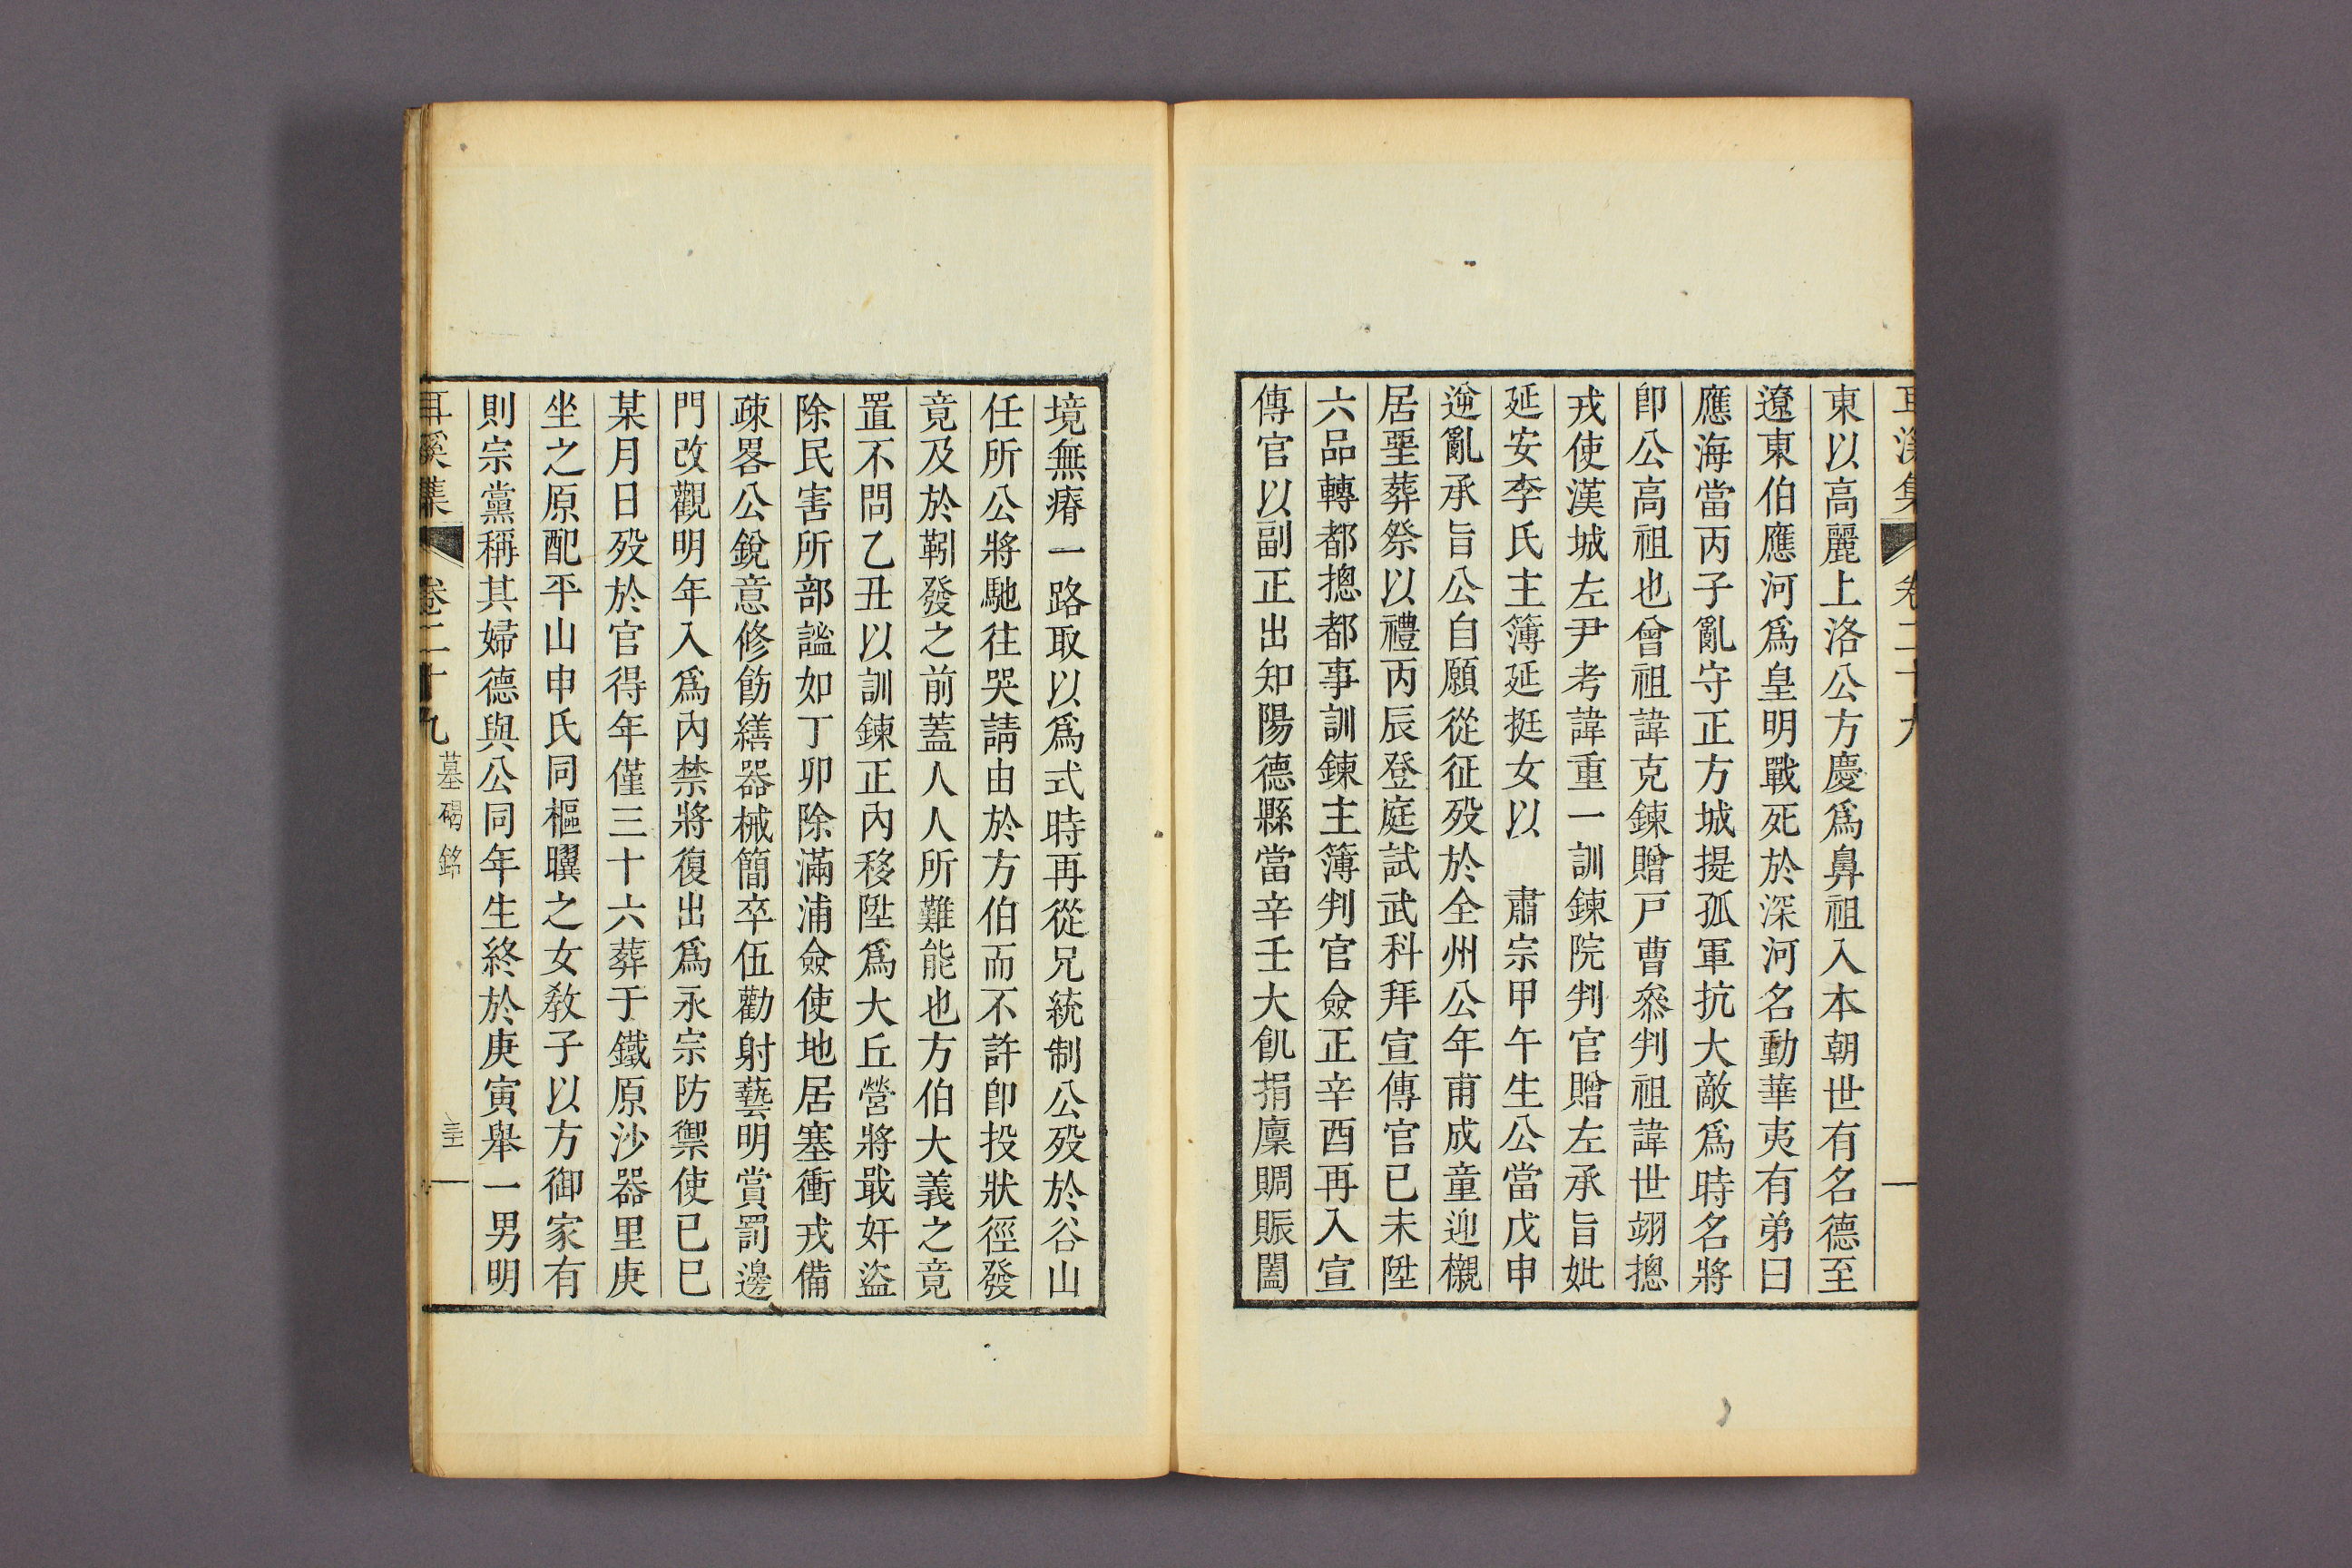 耳溪集 卷二十九
東以高麗上洛公方慶爲鼻祖入本朝世有名德至
遼東伯應河爲皇明戰死於深河名動華夷有弟曰
應海當丙子亂守正方城提孤軍抗大敵爲時名將
卽公高祖也曾祖諱克鍊贈戶曹叅判祖諱世翊摠
戎使漢城左尹考諱重一訓鍊院判官贈左承旨妣
延安李氏主簿延挺女以 肅宗甲午生公當戊申
逆亂承旨公自願從征歿於全州公年甫成童迎櫬
居堊葬祭以禮丙辰登庭試武科拜宣傳官已未陞
六品轉都摠都事訓鍊主簿判官僉正辛酉再入宣
傳官以副正出知陽德縣當辛壬大飢捐廩賙賑闔
境無瘠一路取以爲式時再從兄統制公歿於谷山
任所公將馳往哭請由於方伯而不許卽投狀徑發
竟及於靷發之前蓋人人所難能也方伯大義之竟
置不問乙丑以訓鍊正內移陞爲大丘營將戢奸盜
除民害所部謐如丁卯除滿浦僉使地居塞衝戎備
疎畧公銳意修飭繕器械簡卒伍勸射藝明賞罰邊
門改觀明年入爲內禁將復出爲永宗防禦使已巳
某月日歿於官得年僅三十六葬于鐵原沙器里庚
坐之原配平山申氏同樞曮之女敎子以方御家有
則宗黨稱其婦德與公同年生終於庚寅舉一男明
耳溪集 卷二十九 墓碣銘